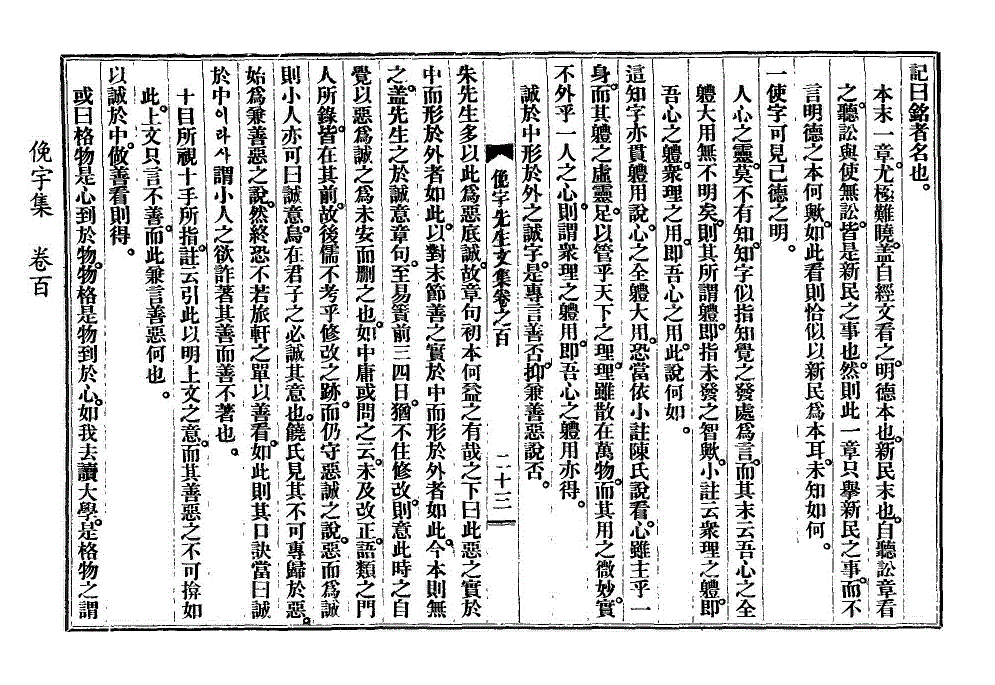 記曰銘者名也。
本末一章。尤極難曉。盖自經文看之。明德本也。新民末也。自聽訟章看
之。聽訟與使無訟。皆是新民之事也。然則此一章只擧新民之事。而不
言明德之本何歟。如此看則恰似以新民爲本耳。未知如何。
一使字可見己德之明。
人心之靈。莫不有知。知字似指知覺之發處爲言。而其末云吾心之全
體大用無不明矣。則其所謂體。卽指未發之智歟。小註云衆理之體。卽
吾心之體。衆理之用。卽吾心之用。此說何如。
這知字亦貫體用說。心之全體大用。恐當依小註陳氏說看。心雖主乎一
身。而其體之虛靈。足以管乎天下之理。理雖散在萬物。而其用之微妙。實
不外乎一人之心。則謂衆理之體用。卽吾心之體用亦得。
誠於中形於外之誠字。是專言善否。抑兼善惡說否。
俛宇先生文集卷之百
二十三
朱先生多以此爲惡底誠。故章句初本何益之有哉之下曰此惡之實於
中而形於外者如此。以對末節善之實於中而形於外者如此。今本則無
之。盖先生之於誠意章句。至易簀前三四日。猶不住修改。則意此時之自
覺以惡爲誠之爲未安而刪之也。如中庸或問之云。未及改正。語類之門
人所錄。皆在其前。故後儒不考乎修改之跡。而仍守惡誠之說。惡而爲誠
則小人亦可曰誠意。烏在君子之必誠其意也。饒氏見其不可專歸於惡。
始爲兼善惡之說。然終恐不若旅軒之單以善看。如此則其口訣當曰誠
於中이라사謂小人之欲詐著其善而善不著也。
十目所視十手所指。註云引此以明上文之意。而其善惡之不可揜如
此。上文只言不善。而此兼言善惡何也。
以誠於中。做善看則得。
或曰格物是心到於物。物格是物到於心。如我去讀大學。是格物之謂
俛宇集　卷百